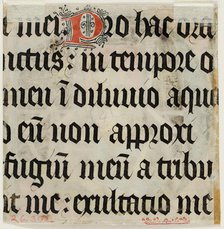 t mei Pro hac ora
nctus: in tempore o
men ī diluuio aqu
o eū non approxi
fugiū meū a tribu
nt me: exultatio me